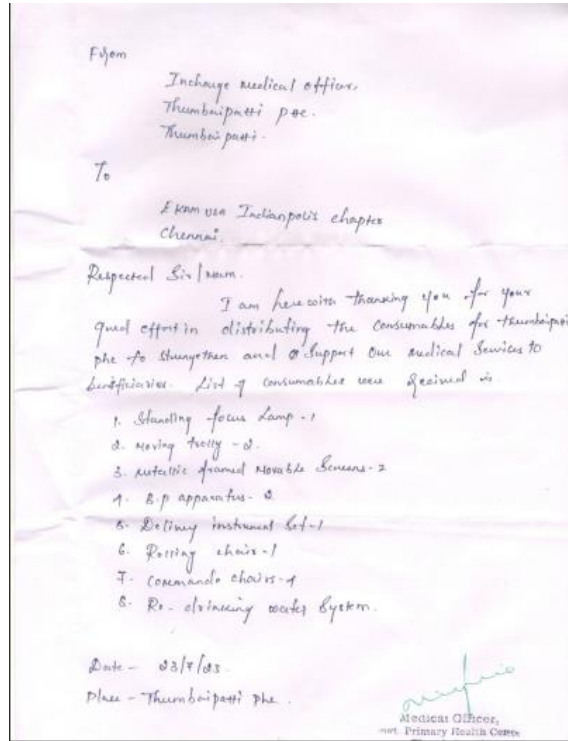 From
Incharge medical officer,
Thumbaipatti PHC.
Thumbaipatti.
To
Ekam USA Indianpolis chapter
Chennai.
Respected Sir/Mam.
I am herewith thanking you for your
good effort in distributing the consumables for thumbaipatti
phc to strengethen and support our medical Services to
beneficiaries. List of consumables were received is
1. Standing focus Lamp - 1
2. Moving trolly - 2.
3. Metallic framed Movable Screens - 2
4. B.P apparatus - 2
5. Delivery instrument Set - 1
6. Rolling chair - 1
7. Commando chairs - 4
8. Ro - drinking water System.
Date - 23/7/23
Place - Thumbaipatti Phc.
Medical Officer,
Primary Health Centre